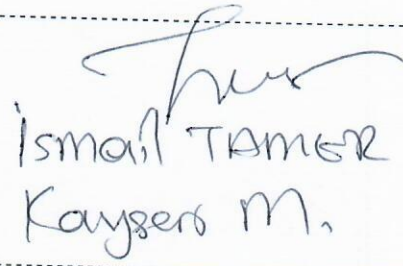 İsmail TAMER
Kayseri M.